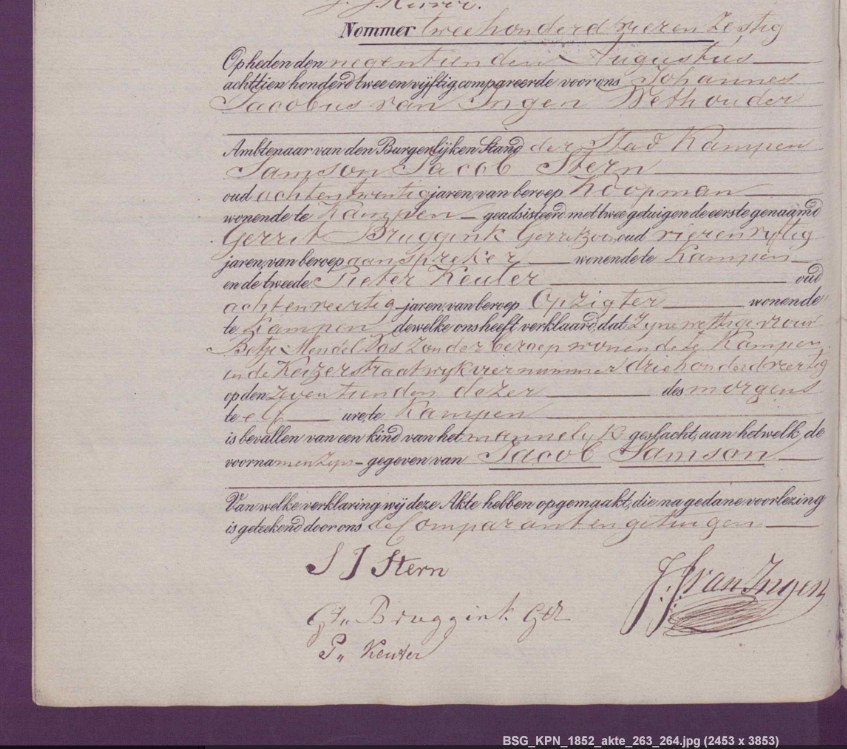 Nommer twee honderd vier en zestig
Op heden den negentienden Augustus
achttien honderd twee en vijftig, compareerde voor ons Johannes
Jacobus van Ingen Wethouder
Ambtenaar van den Burgerlijken Stand der Stad Kampen
Samson Jacob Stern
oud acht en twintig jaren, van beroep Koopman
wonende te Kampen geadsisteerd met twee getuigen de eerste genaamd
Gerrit Bruggink Gerritzoon oud vier en vyftig
jaren, van beroep aanspreker wonende te Kampen
en de tweede Pieter Keuter oud
acht en veertig jaren, van beroep Opzigter wonende
te Kampen dewelke ons heeft verklaard dat Zyne wettige vrouw
Betje Mendel Vos Zonder beroep wonende te Kampen
in de Keizerstraat wyk vier nummer drie honderd veertig
op den zeventienden dezer des morgens
te elf ure, te Kampen
is bevallen van een kind van het mannelyk geslacht, aan hetwelk de
voornamen zyn gegeven van Jacob Samson
Van welke verklaring wij deze Akte hebben opgemaakt, die na gedane voorlezing
is geteekend door ons de Comparant en getuigen
S J Stern
J. J. van Ingen
Gt. Bruggink Gtz
P. Keuter
BSG_KPN_1852_akte_263_264.jpg (2453 x 3853)